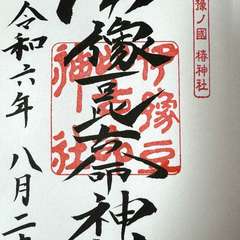 豫ノ國 椿神社
伊豫豆
比古命
神社
豫豆比古命神
令和六年 八月二